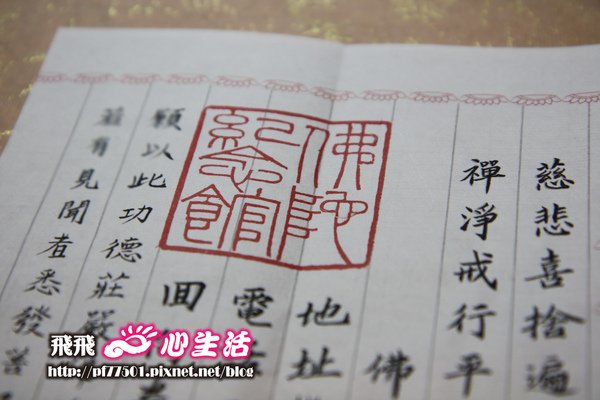 慈悲喜捨遍
禪淨戒行平
佛
地址
電
佛陀
紀念館
回
願以此功德莊嚴
若有見聞者悉發菩
飛飛心生活
http://pf77501.pixnet.net/blog